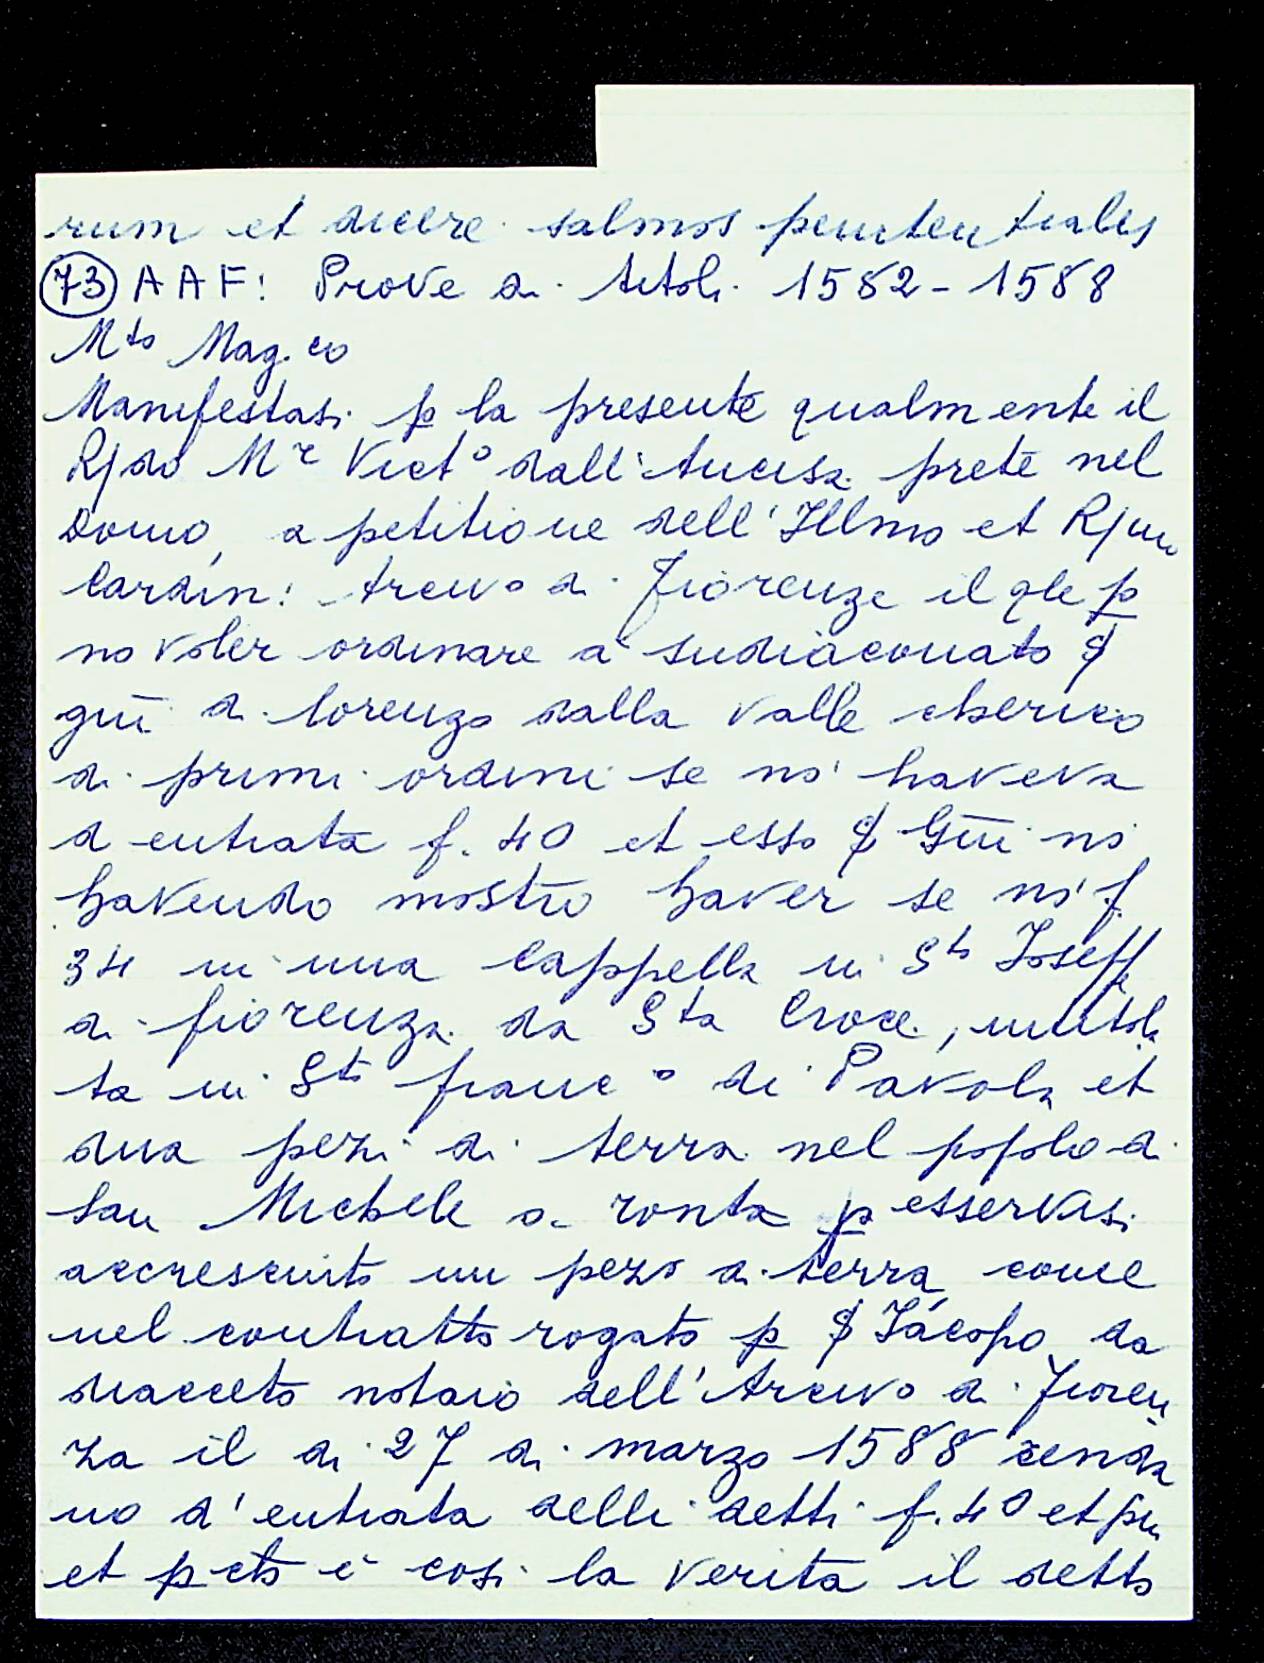 rum et dicere salmos penitentiales
(73) AAF: Prove di titoli 1582-1588
Mto Mag.co
Manifestasi p la presente qualmente il
R/do Mr Vict° dall'Ancisa prete nel
Domo, a petitione dell'Illmo et R/mo
Cardin: Arciv° di Fiorenze il qle p
no voler ordinare a sudiaconato $
gūi di lorenzo dalla valle cherico
di primi ordini se no haveva
d entrata f. 40 et esso $ Gūi no
havendo mostro haver se no f.
34 in una Cappella in Sto Joseffe
di fiorenza da Sta Croce, intitola
ta in Sto franc° di Pavola et
dua pezi di terra nel popolo di
San Michele a ronta p esservasi
accresciuto un pezo di terra come
nel contratto rogato p $ Jácopo da
diacceto notaio dell'Arciv° di Fioren
za il di 27 di marzo 1588 renda
no d'entrata delli detti f. 40 et piu
et p cto è cosi la verita il detto